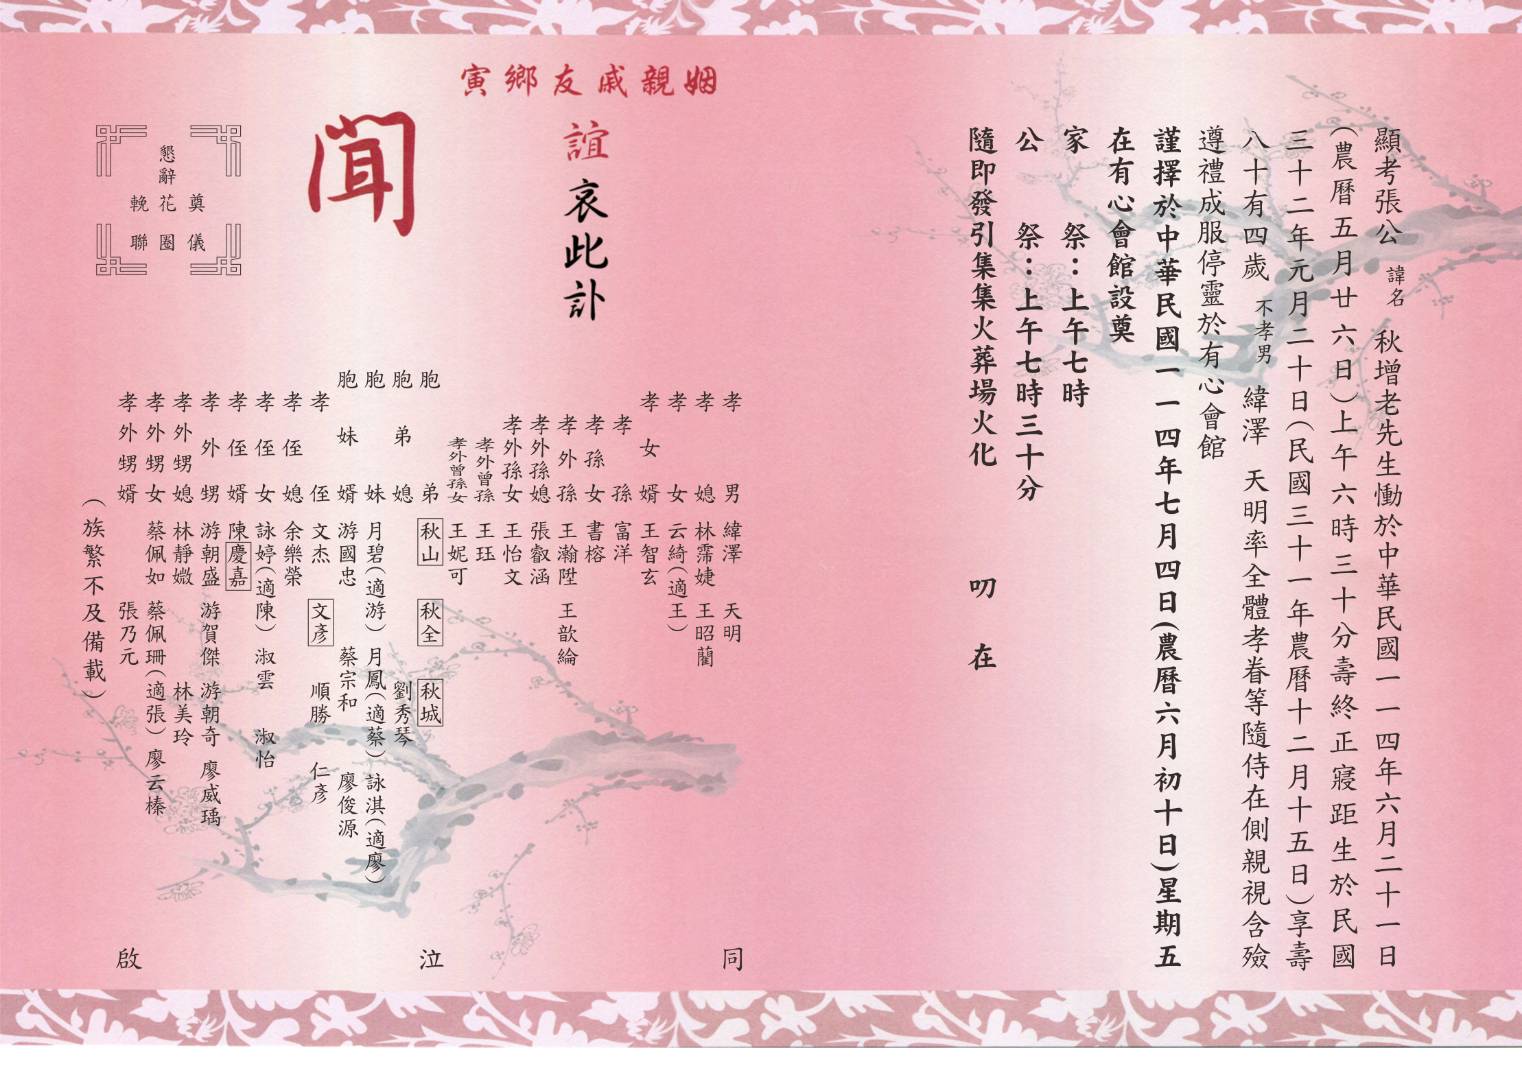 顯考張公諱名秋增老先生慟於中華民國一一四年六月二十一日
(農曆五月廿六日)上午六時三十分壽終正寢距生於民國
三十二年元月二十日(民國三十一年農曆十二月十五日)享壽
八十有四歲 不孝男 緯澤 天明率全體孝眷等隨侍在側親視含殮
遵禮成服停靈於有心會館
謹擇於中華民國一一四年七月四日(農曆六月初十日)星期五
在有心會館設奠
家 祭：上午七時
公 祭：上午七時三十分
隨即發引集集火葬場火化 叨 在
寅鄉友戚親姻
誼哀此訃
聞
懇辭
輓花奠
聯圈儀
孝男 緯澤 天明
孝媳 林霈婕 王昭藺
孝女 云綺(適王)
孝女婿 王智玄
孝孫 富洋
孝孫女 書榕
孝外孫 王瀚陞 王歆綸
孝外孫媳 張叡涵
孝外孫女 王怡文
孝外曾孫 王珏
孝外曾孫女 王妮可
胞弟 秋山 秋全 秋城
胞弟媳 劉秀琴
胞妹 月碧(適游) 月鳳(適蔡) 詠淇(適廖)
胞妹婿 游國忠 蔡宗和 廖俊源
孝侄 文杰 文彥 順勝 仁彥
孝侄媳 余樂榮
孝侄女 詠婷(適陳) 淑雲 淑怡
孝侄婿 陳慶嘉
孝外甥 游朝盛 游賀傑 游朝奇 廖威瑀
孝外甥媳 林靜媺 林美玲
孝外甥女 蔡佩如 蔡佩珊(適張) 廖云榛
孝外甥婿 張乃元
(族繁不及備載)
同 泣 啟